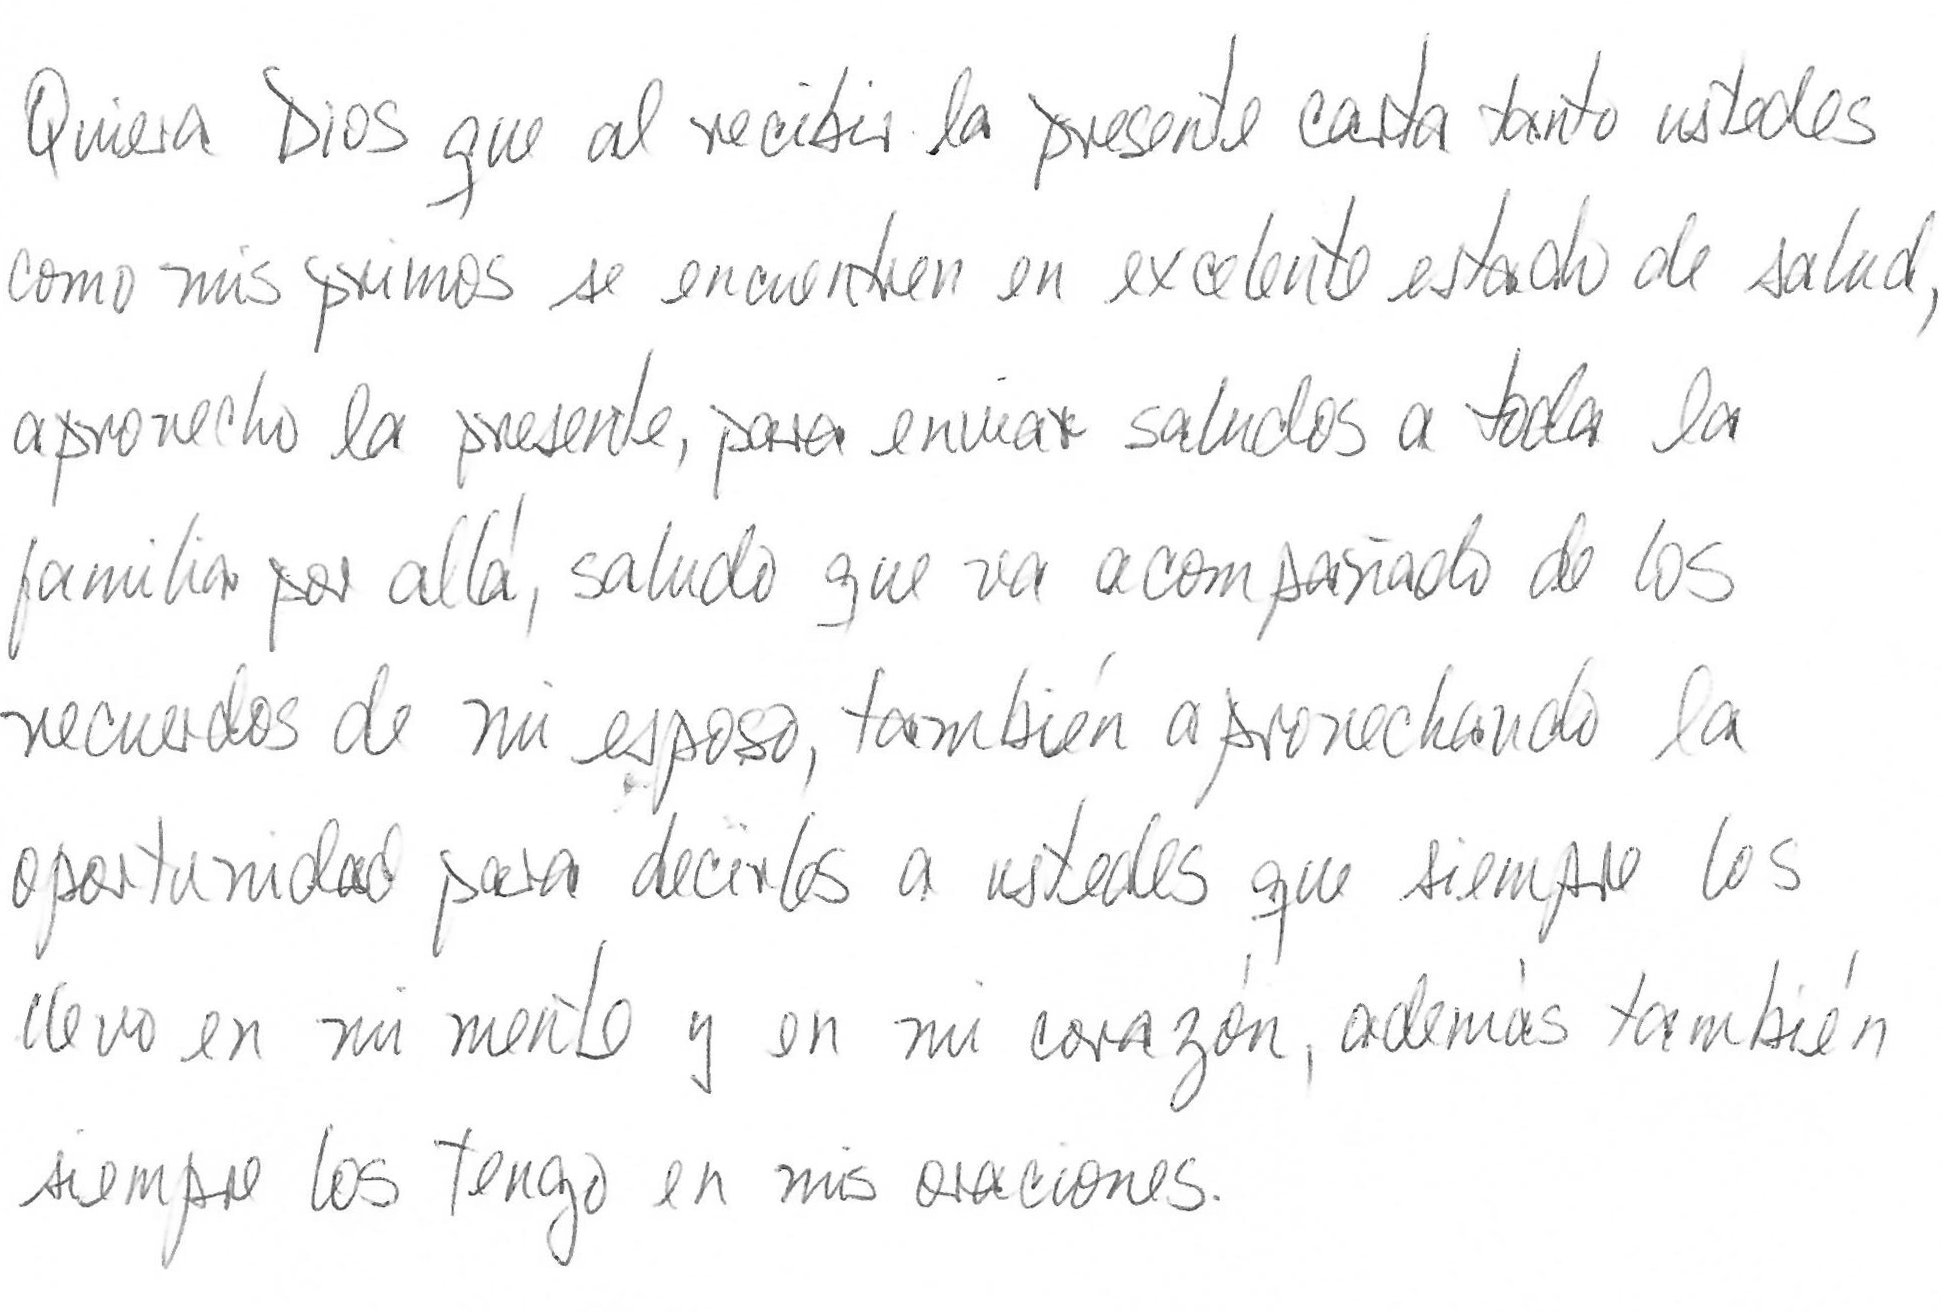 Quiera Dios que al recibir la presente carta tanto ustedes
como mis primos se encuentren en excelente estado de salud,
aprovecho la presente, para enviar saludos a toda la
familia por allá, saludo que va acompañado de los
recuerdos de mi esposo, también aprovechando la
oportunidad para decirles a ustedes que siempre los
llevo en mi mente y en mi corazón, además también
siempre los tengo en mis oraciones.